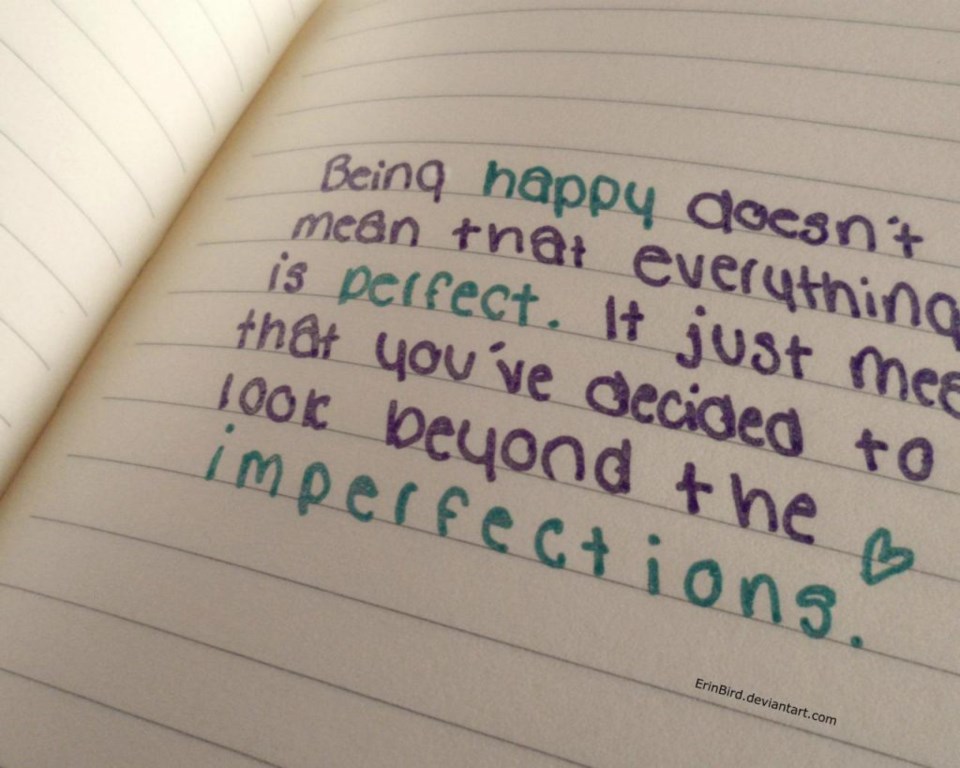 Being happy doesn't
mean that everything
is perfect. It just mea
that you've decided to
look beyond the
imperfections.
ErinBird.deviantart.com